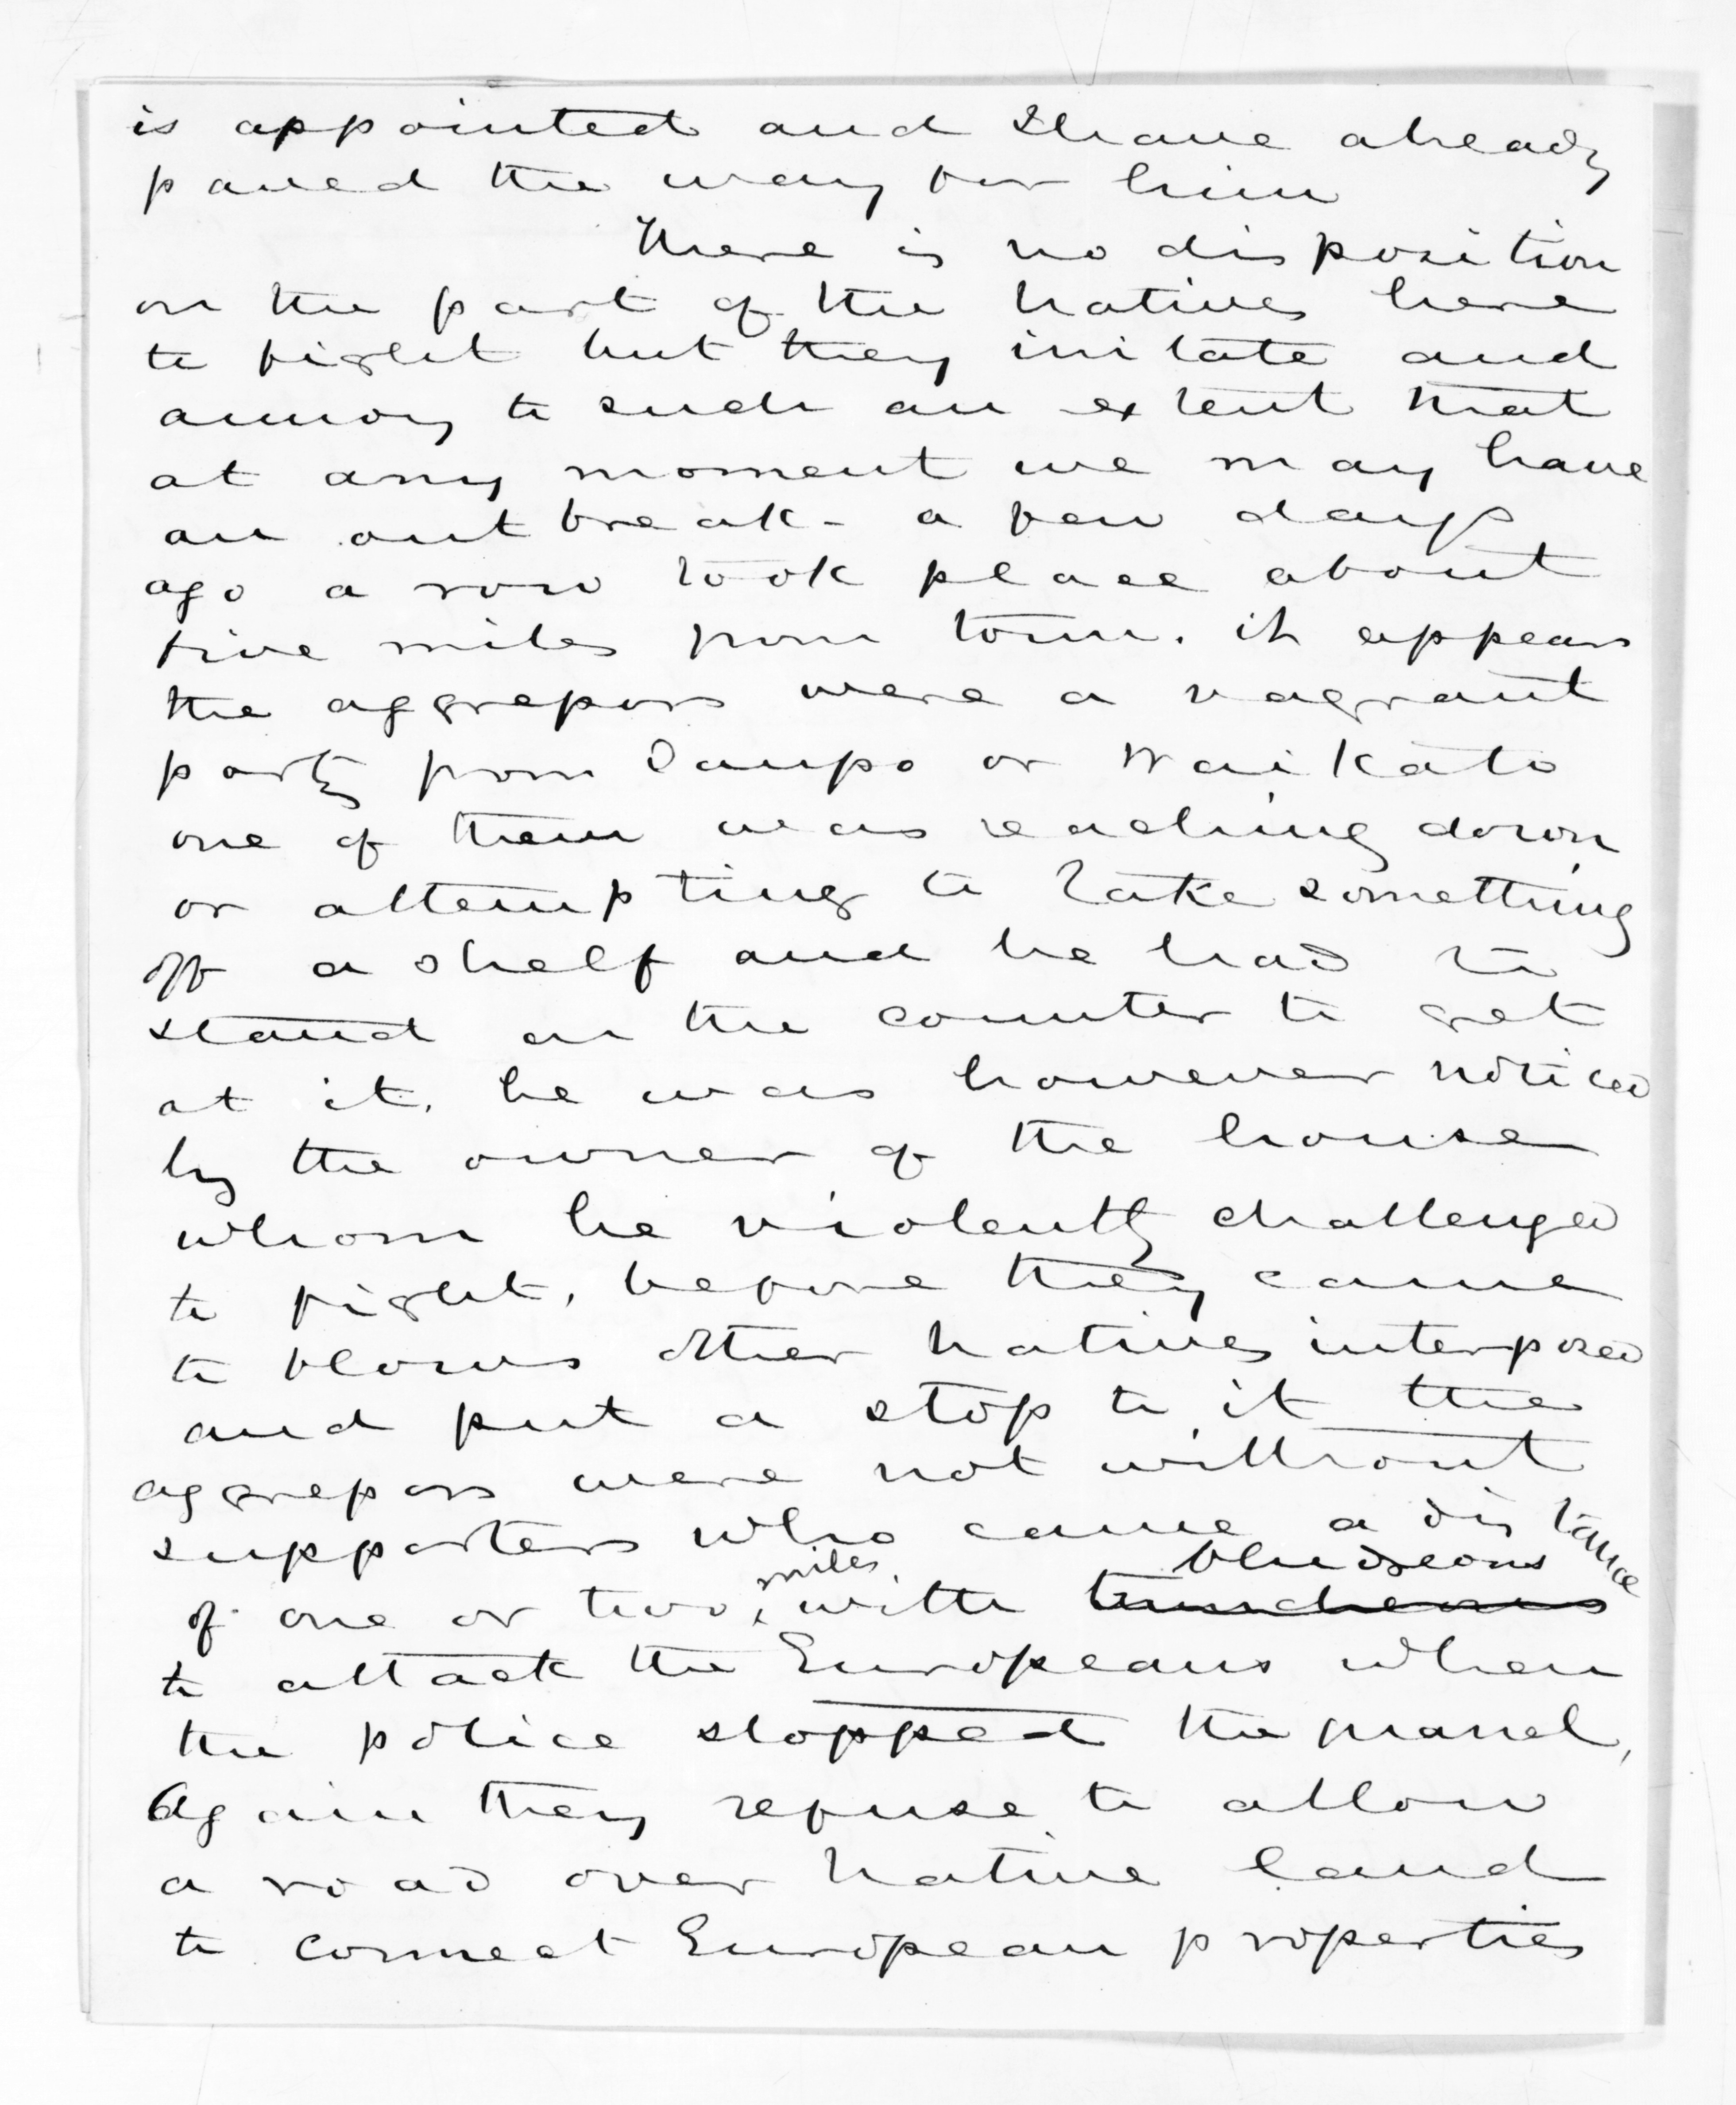 is appointed and I have already
paved the way for him
There is no disposition
on the part of the natives here
to fight but they irritate and
annoy to such an extent that
at any moment we may have
an out break - a few days
ago a row took place about
five miles from town. it appears
the aggressors were a vagrant
party from Taupo or Waikato
one of them was reaching down
or attempting to take something
off a shelf and he had to
stand on the counter to get
at it, he was however noticed
by the owner of the house
whom he violently challenged
to fight, before they came
to blows other natives interposed
and put a stop to it the
aggressors were not without
supporters who came a distance
of one or two miles, with truncheons bludgeons
to attack the Europeans when
the police stopped the quarrel,
Again they refuse to allow
a road over native land
to connect European properties